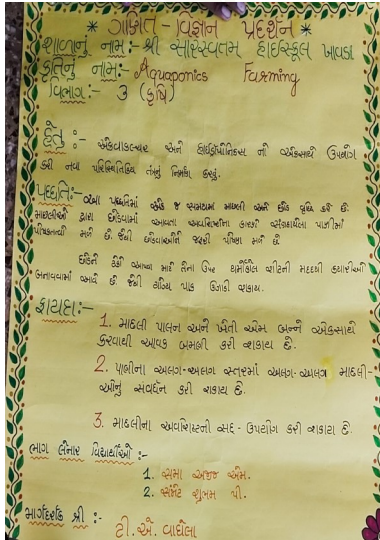 * ગાણિત - વિજ્ઞાન પ્રદર્શન *
શાળાનું નામ :- શ્રી સારસ્વતમ હાઇસ્કૂલ ખાવડા
કૃતિનું નામ :- Aquaponics Farming
વિભાગ :- 3 (કૃષિ)
હેતુ :- એકવાકલ્ચર અને હાઇડ્રોપોનિક્સ નો એકસાથે ઉપયોગ
કરી નવા પરિસ્થિતિકિય તંત્રનું નિર્માણ કરવું.
પધ્ધતિ :- આ પધ્ધતિમાં એક જ સમયમાં માછલી અને છોડ વૃધ્ધિ કરે છે.
માછલીઓ દ્વારા છોડવામાં આવતા અવશિષ્ટોના કારણે પાણીમાં
પોષકતત્વો મળે છે. જેથી છોડવાઓને જરૂરી પોષણ મળે છે
છોડને ટેકો આપવા માટે તેના ઉપર થર્મોકોલ શીટની મદદથી ક્યારીઓ
બનાવવામાં આવે છે જેથી યોગ્ય પાક ઉગાડી શકાય.
ફાયદા :-
1. માછલી પાલન અને ખેતી એમ બન્ને એકસાથે
કરવાથી આવક બમણી કરી શકાય છે.
2. પાણીના અલગ-અલગ સ્તરમાં અલગ-અલગ માછલી-
ઓનું સંવર્ધન કરી શકાય છે.
3. માછલીના અવશિષ્ટની સદ્-ઉપયોગ કરી શકાય છે.
ભાગ લેનાર વિદ્યાર્થીઓ :-
1. સમા અજીજ એમ.
2. શુભમ પી.
માર્ગદર્શક શ્રી :-
ટી. એ. વાઘેલા